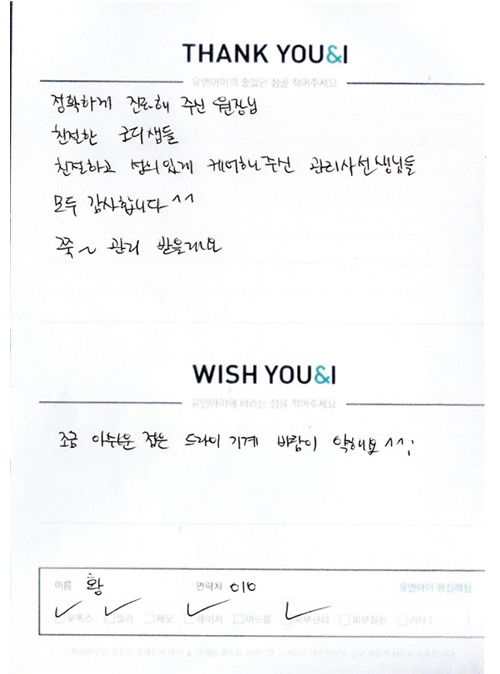 THANK YOU&I
유앤아이의 좋았던 점을 적어주세요
정확하게 진료해 주신 원장님
친절한 코디샘들
친절하고 성의있게 케어해주신 관리사선생님들
모두 감사합니다 ^^
쭉~ 관리 받을래요
WISH YOU&I
유앤아이에 바라는 점을 적어주세요
조금 아쉬운 점은 드라이 기계 바람이 약해요 ^^;
이름 황 연락처 010 유앤아이 왕십리점
보톡스 필러 제모 레이저 여드름 피부관리 피부질환 기타 ( )